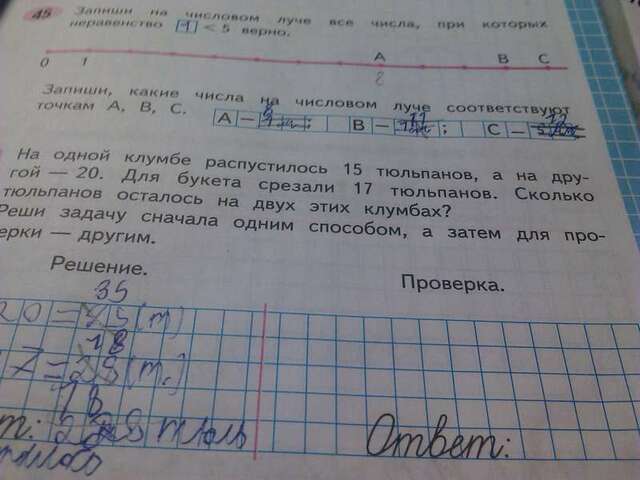 45 Запиши на числовом луче все числа, при которых
неравенство 1 < 5 верно.
A B C
0 1 8
Запиши, какие числа на числовом луче соответствуют
точкам A, B, C. A – 8 ; B – 11 ; C – 12
На одной клумбе распустилось 15 тюльпанов, а на дру-
гой — 20. Для букета срезали 17 тюльпанов. Сколько
тюльпанов осталось на двух этих клумбах?
Реши задачу сначала одним способом, а затем для про-
ерки — другим.
Решение. Проверка.
35
20= (т)
18
7= (т.)
18
т: тюль
Ответ: